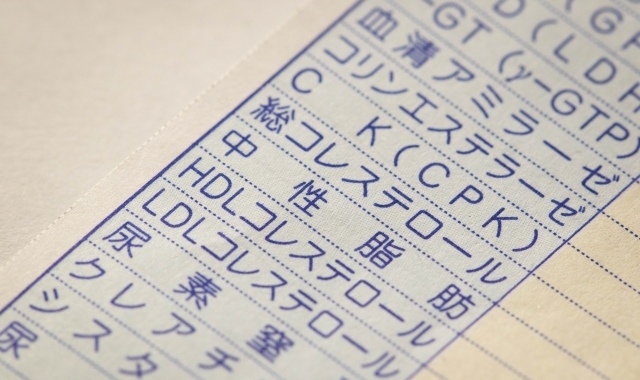 D(LD
-GT(γ-GTP)
血清アミラーゼ
コリンエステラーゼ
CK(CPK)
総コレステロール
中性脂肪
HDLコレステロール
LDLコレステロール
尿素窒
クレアチ
シスタ
尿